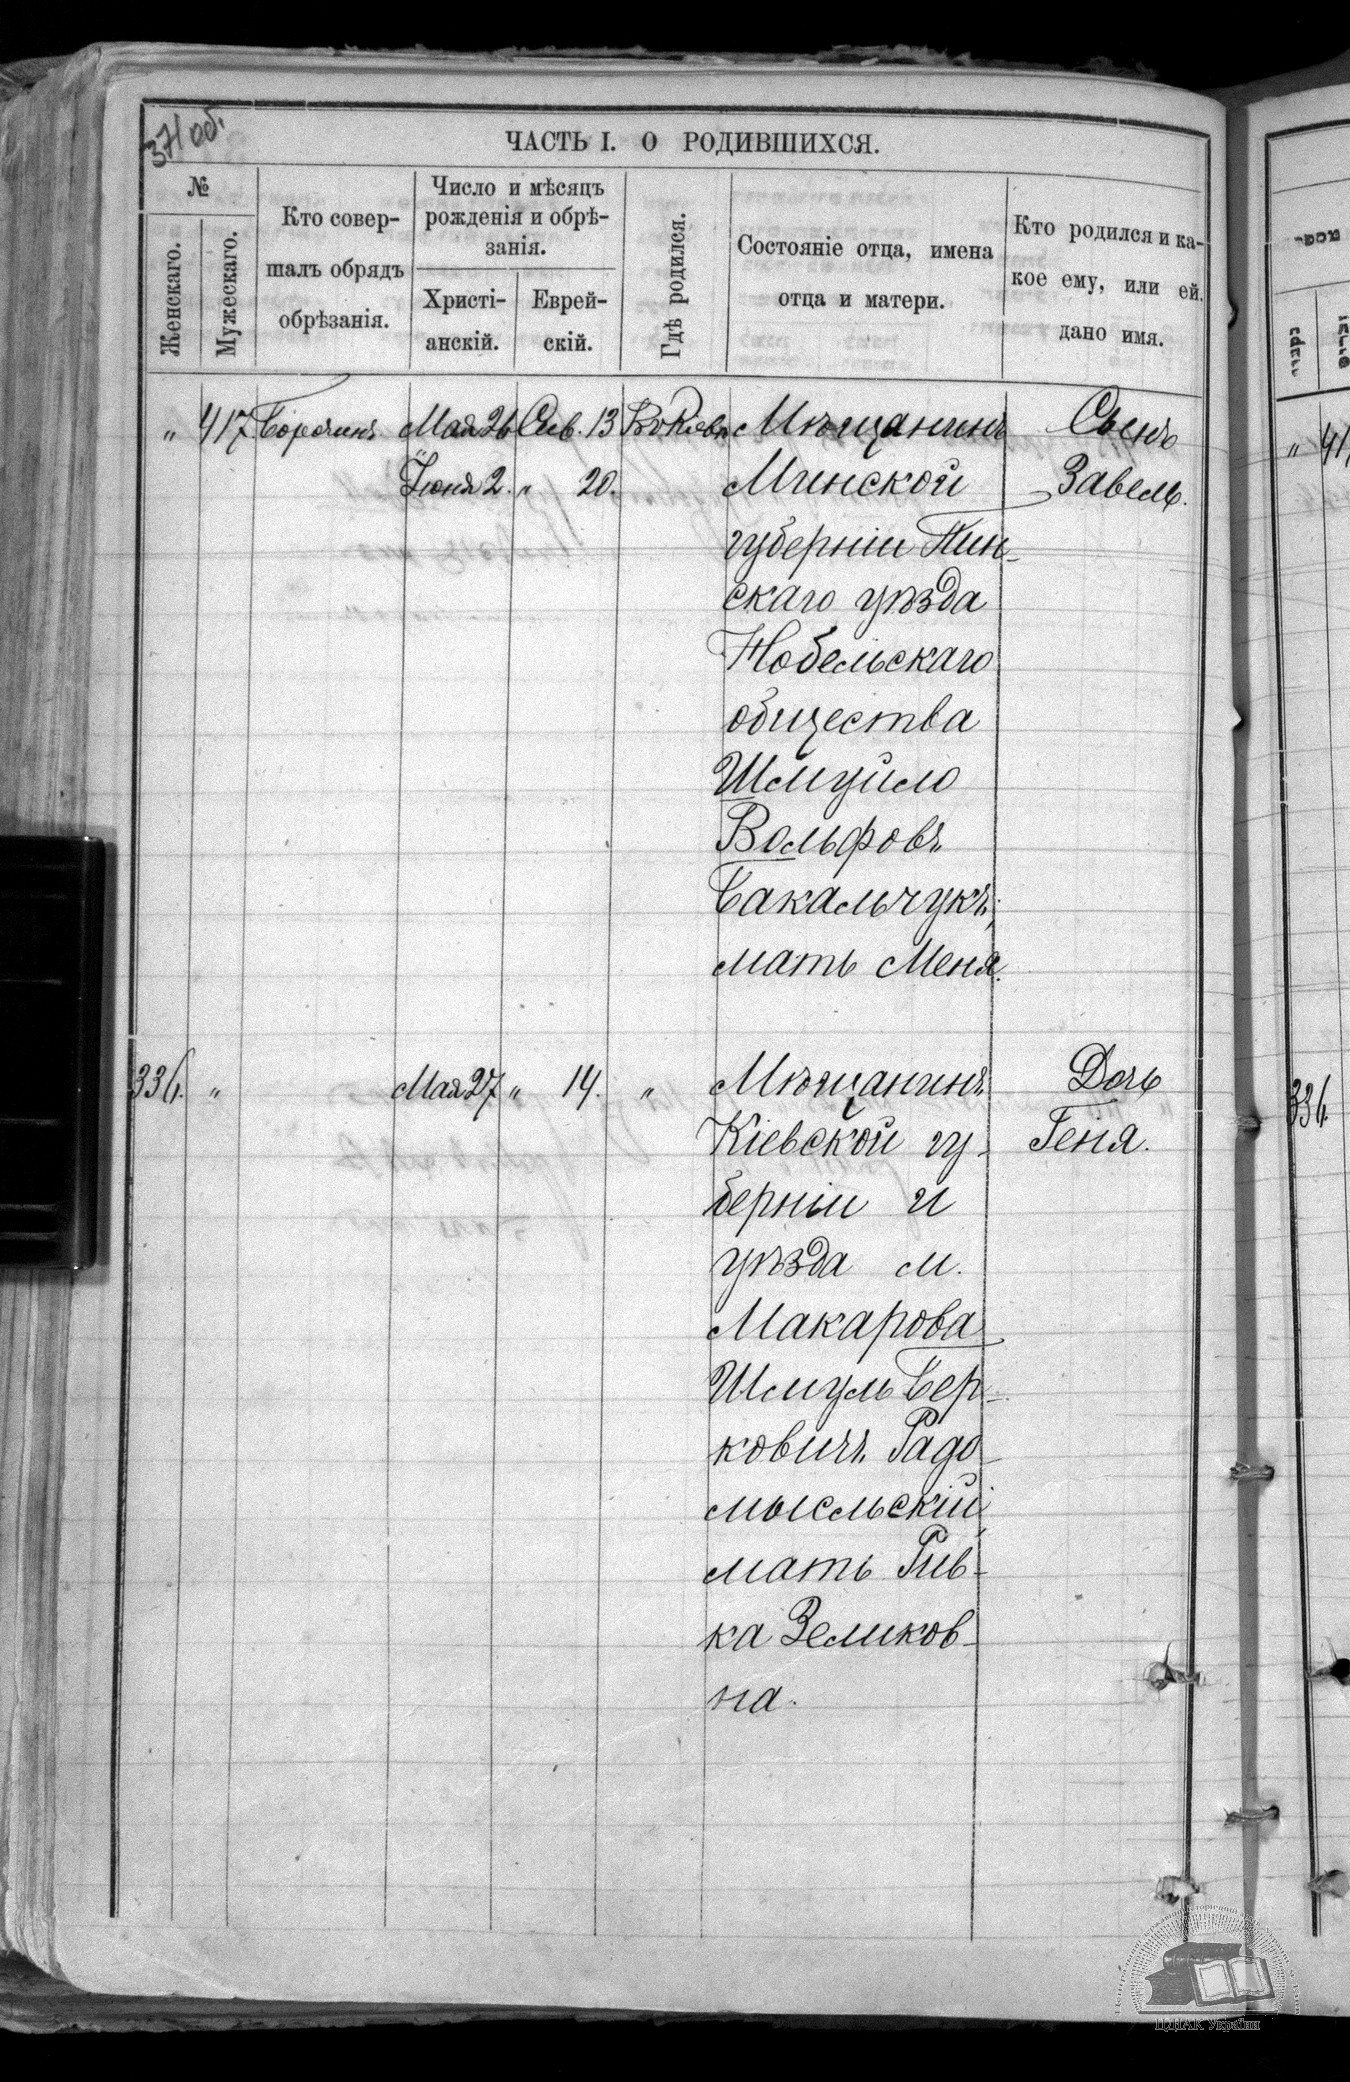 37/об.
ЧАСТЬ I. О РОДИВШИХСЯ.
№
Женскаго.
Мужескаго.
Кто совер-
шалъ обрядъ
обрѣзанія.
Число и мѣсяцъ
рожденія и обрѣ-
занія.
Христі-
анскій.
Еврей-
скій.
Гдѣ родился.
Состояніе отца, имена
отца и матери.
Кто родился и ка-
кое ему, или ей,
дано имя.
„ 417 Мая 26 Сив. 13 Въ Кіевѣ Мѣщанинъ Сынъ
Іюня 2. „ 20. Минской Завель.
губерніи Пин-
скаго уѣзда
Нобельскаго
общества
Шмуйло
Вольфовъ
Бакальчукъ,
мать Меня.
336. „ Мая 27 „ 14. „ Мѣщанинъ Дочь
Кіевской гу- Геня.
берніи и
уѣзда м.
Макарова
Шмуль Бер-
ковичъ Радо-
мысльскій,
мать Рив-
ка Зеликов-
на.
„ 41
336.
ЦДІАК України